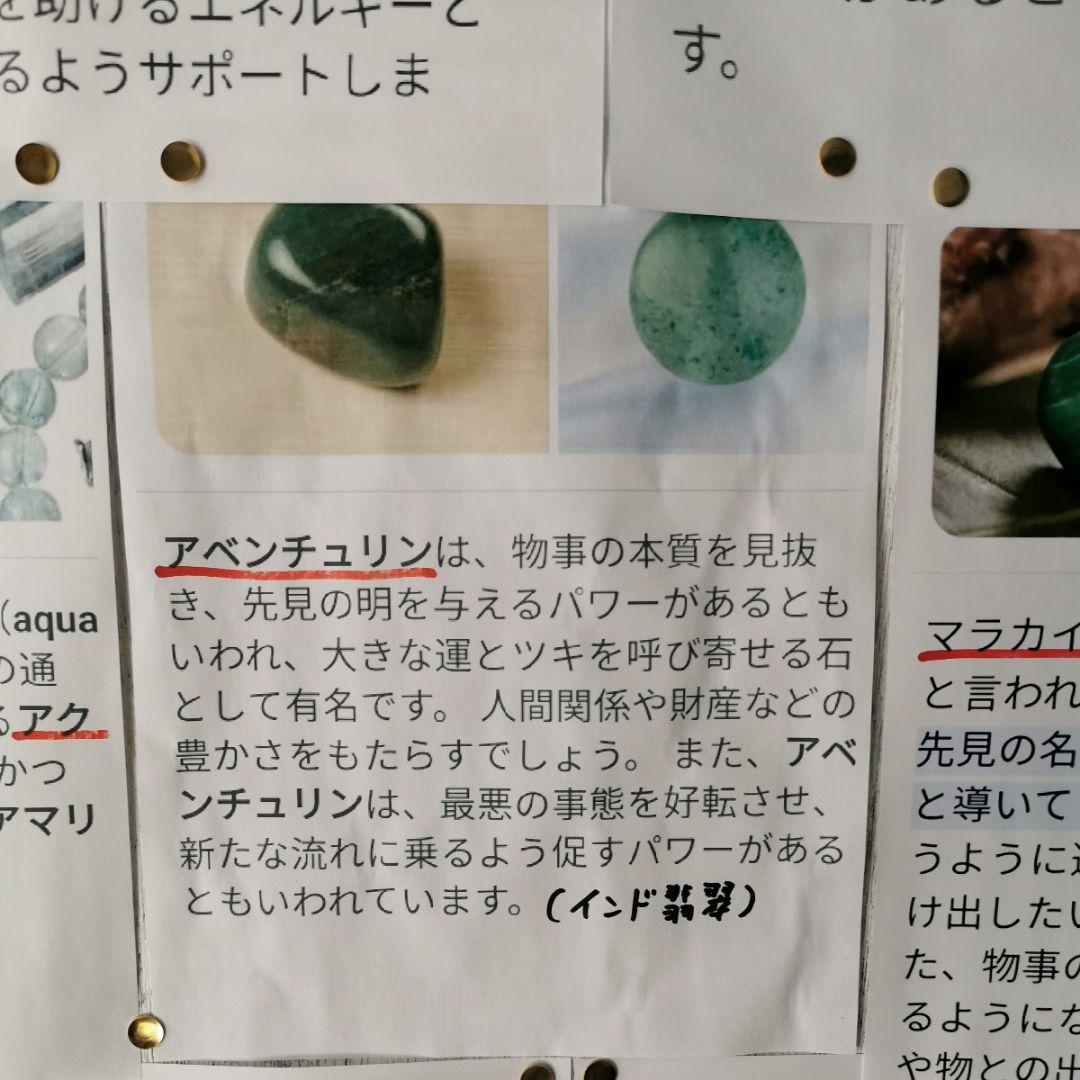 を助けるエネルギーと
るようサポートしま
す。
アベンチュリンは、物事の本質を見抜
き、先見の明を与えるパワーがあるとも
いわれ、大きな運とツキを呼び寄せる石
として有名です。 人間関係や財産などの
豊かさをもたらすでしょう。 また、アベ
ンチュリンは、最悪の事態を好転させ、
新たな流れに乗るよう促すパワーがある
ともいわれています。(インド翡翠)
(aqua
の通
るアク
かつ
アマリ
マラカイ
と言われ
先見の名
と導いて
うように
け出したい
た、物事の
るようにな
や物との出